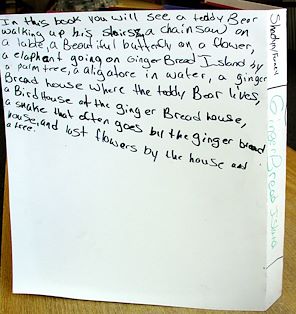 In this book you will see a teddy Bear
walking up his stairs, a chainsaw on
a table, a Beautiful butterfly on a flower,
a elaphant going on Ginger Bread Island by
a palm tree, a aligatore in water, a ginger
Bread house where the teddy Bear lives,
a Bird House at the ginger Bread house,
a snake that often goes by the ginger bread
house, and last flowers by the house and
a tree.
Ginger Bread Island